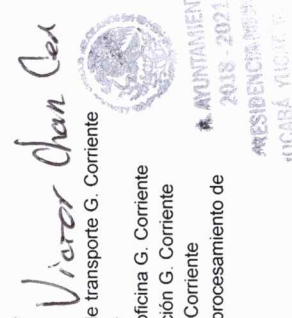 Victor Chan Cen
e transporte G. Corriente
oficina G. Corriente
ción G. Corriente
Corriente
procesamiento de
AYUNTAMIEN
2018 - 2021
PRESIDENCIA